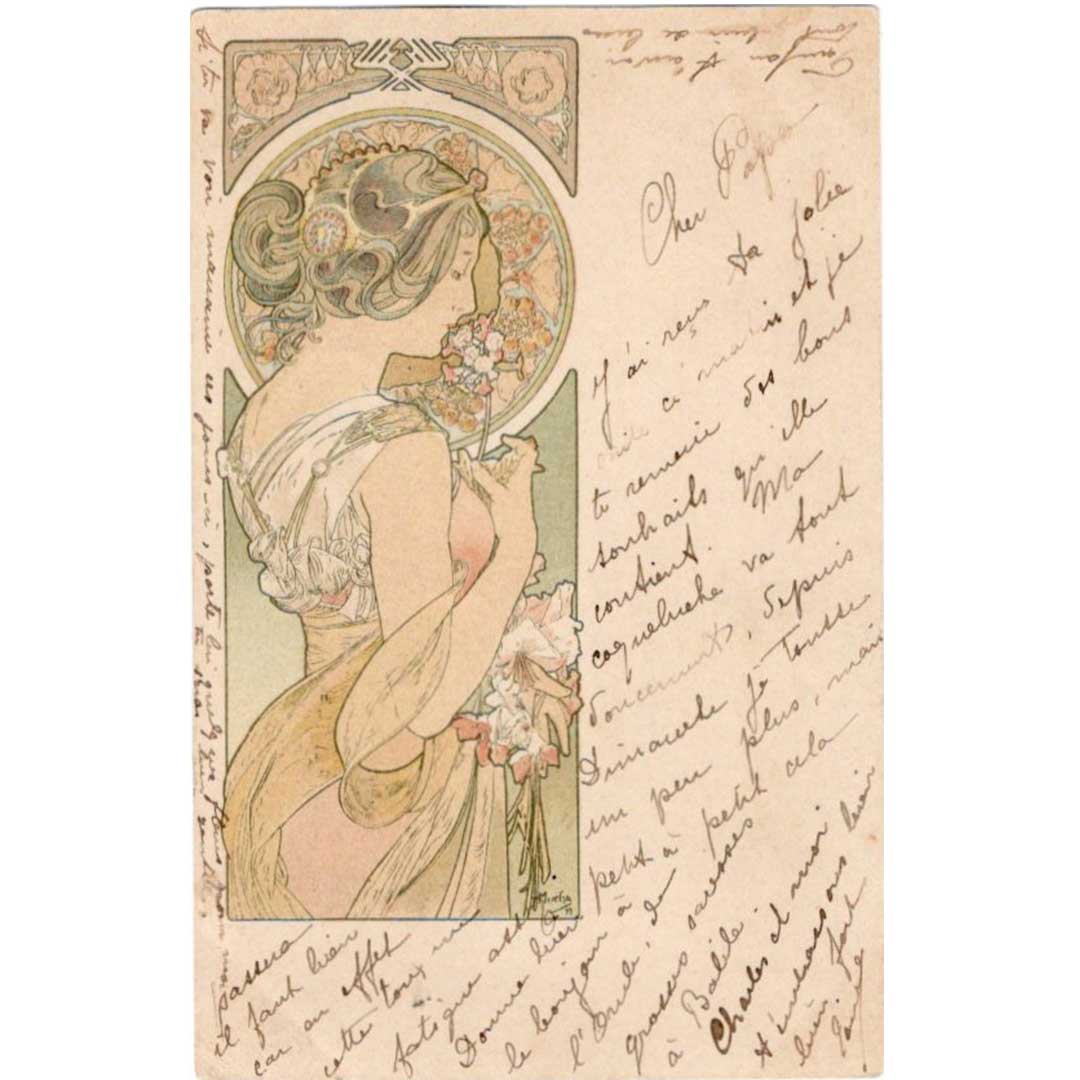 Cher Papa
J'ai reçu ta jolie
ce matin et je
te remercie des bons
souhaits qu'elle
contient. Ma
coqueluche va tout
doucement, depuis
Dimanche je tousse
un peu plus, mais
petit à petit cela
passera
il faut bien
car en effet
cette toux me
fatigue
Donne bien
le bonjour à
l'Oncle de
grosses caresses
à Bébile
Charles et moi
t'embrassons bien
bien fort
Mucha
si tu va voir ces jours-ci, porte lui quelque pour moi
tu seras bien gentil,